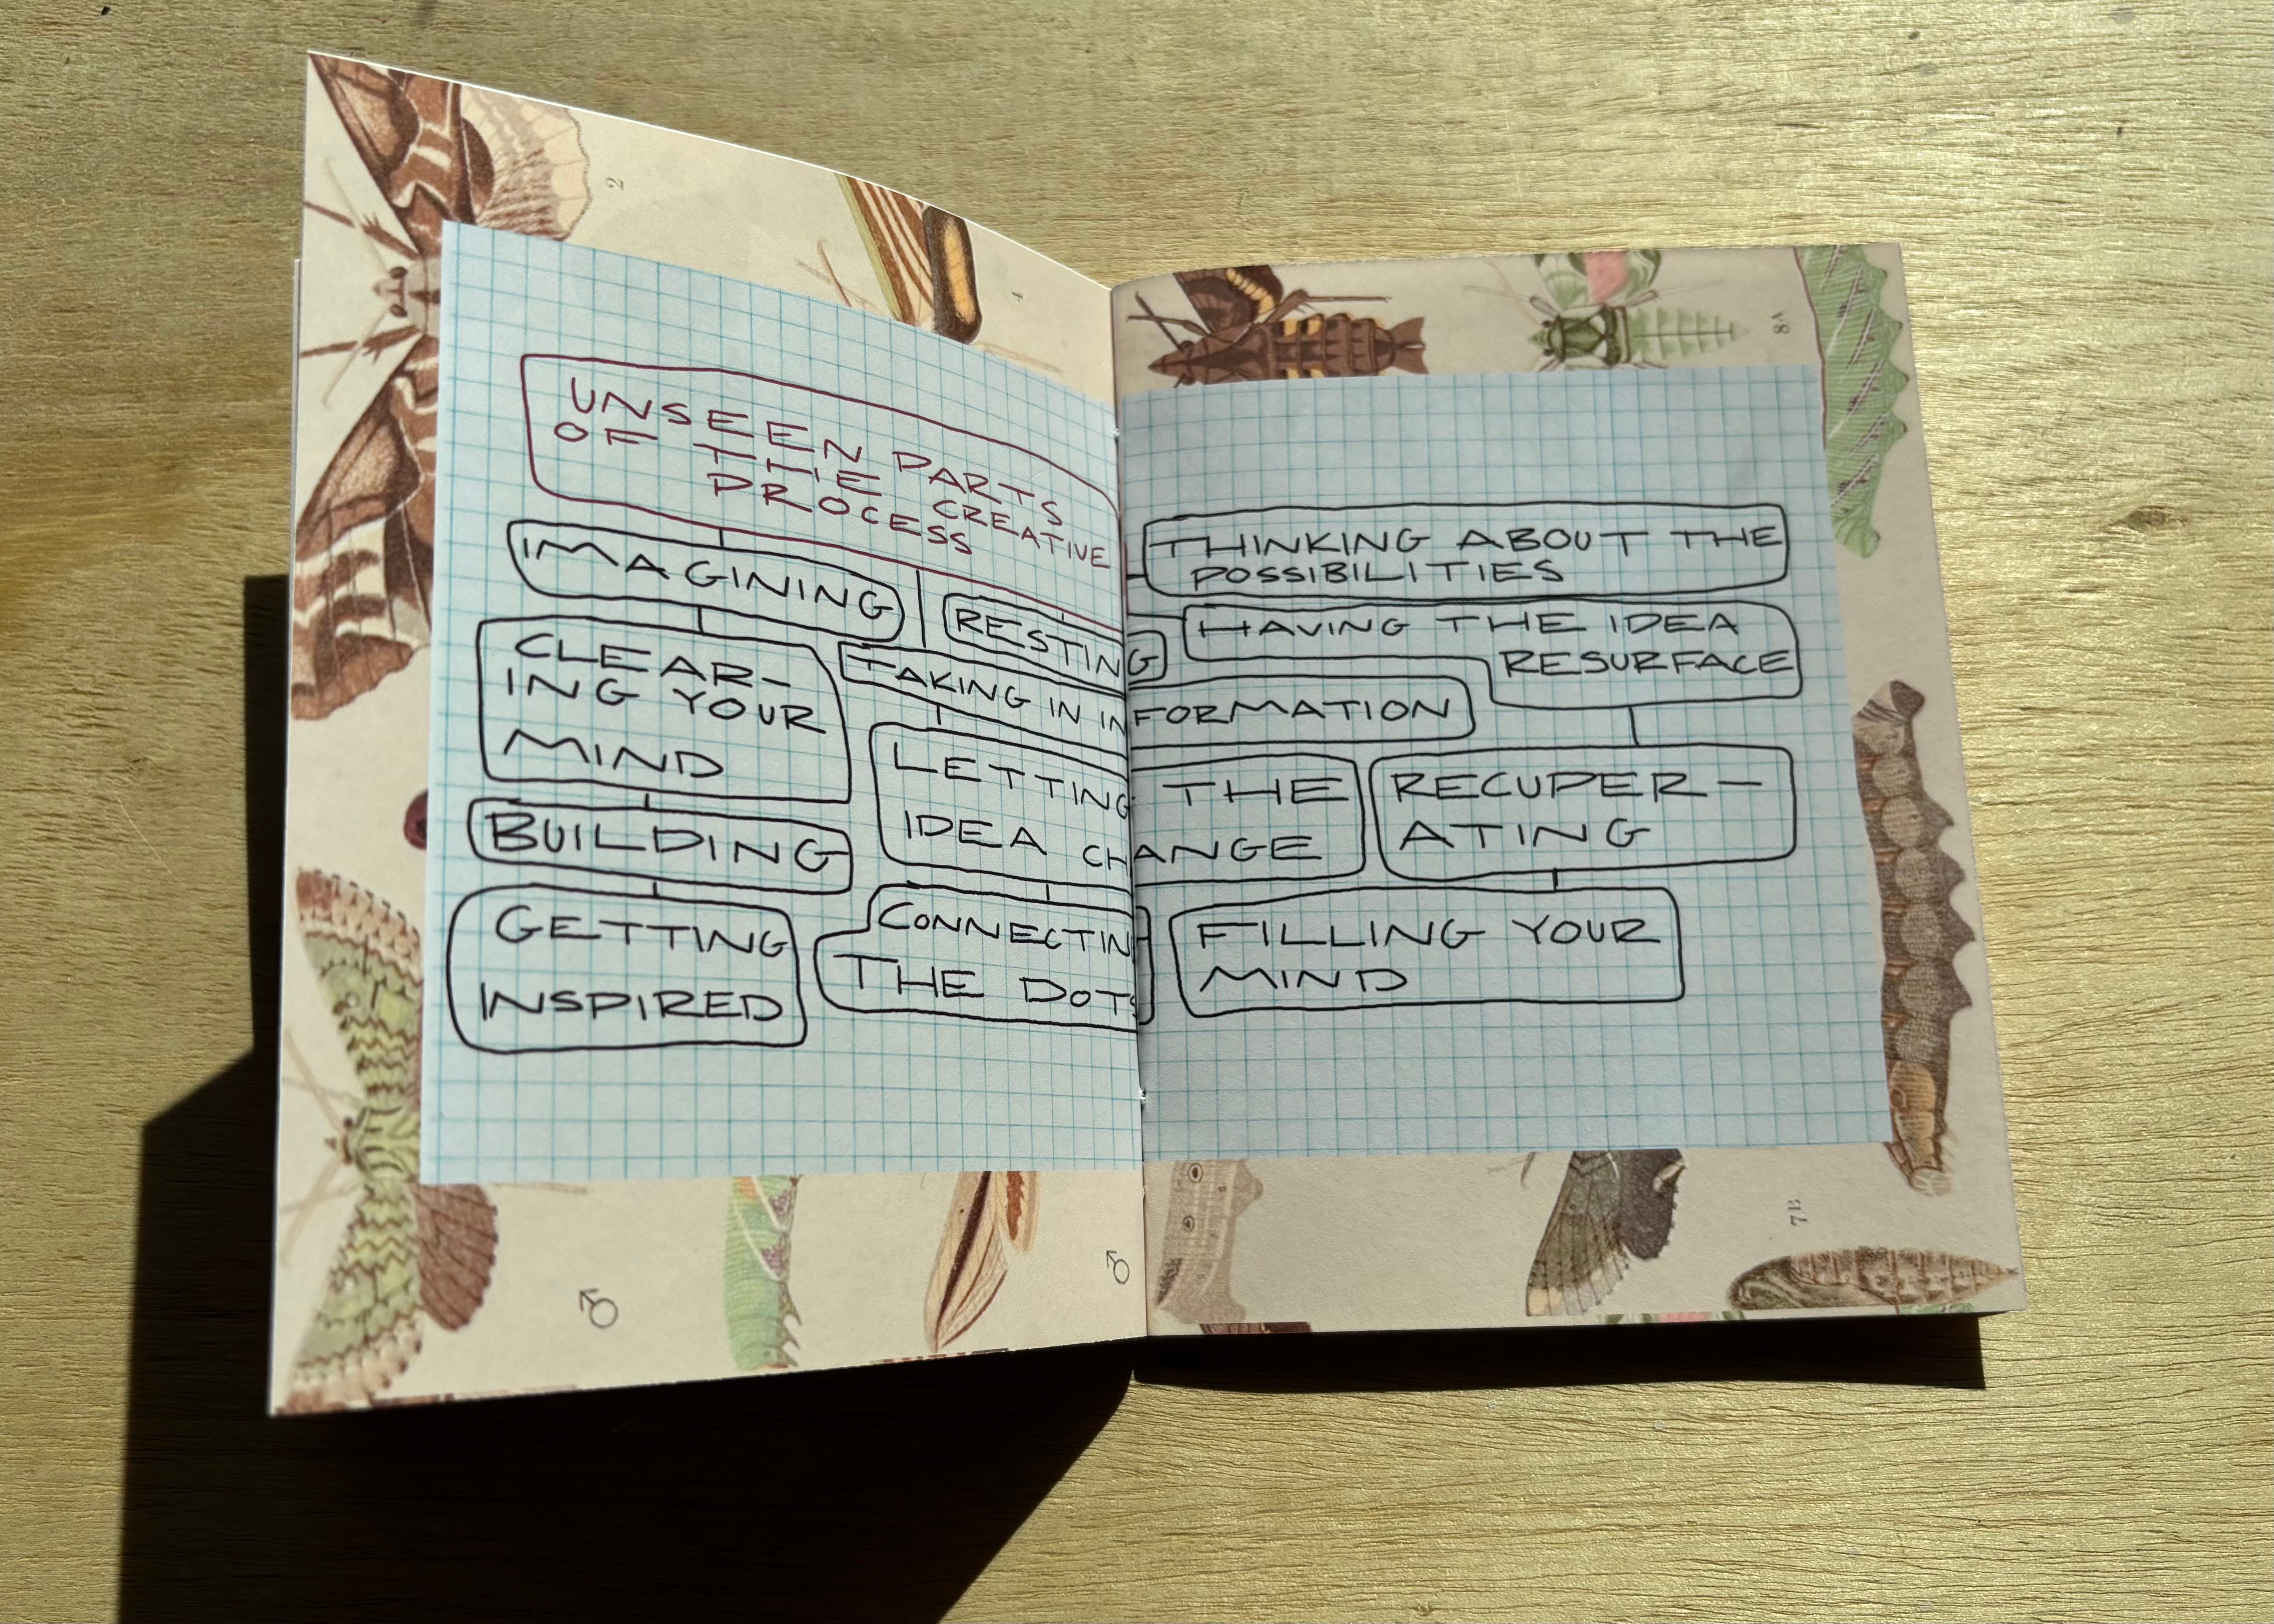 UNSEEN PARTS
OF THE CREATIVE
PROCESS
IMAGINING
RESTING
THINKING ABOUT THE
POSSIBILITIES
CLEAR-
ING YOUR
MIND
TAKING IN INFORMATION
HAVING THE IDEA
RESURFACE
BUILDING
LETTING THE
IDEA CHANGE
RECUPER-
ATING
GETTING
INSPIRED
CONNECTING
THE DOTS
FILLING YOUR
MIND
2
1
8A
7B
♂
♂